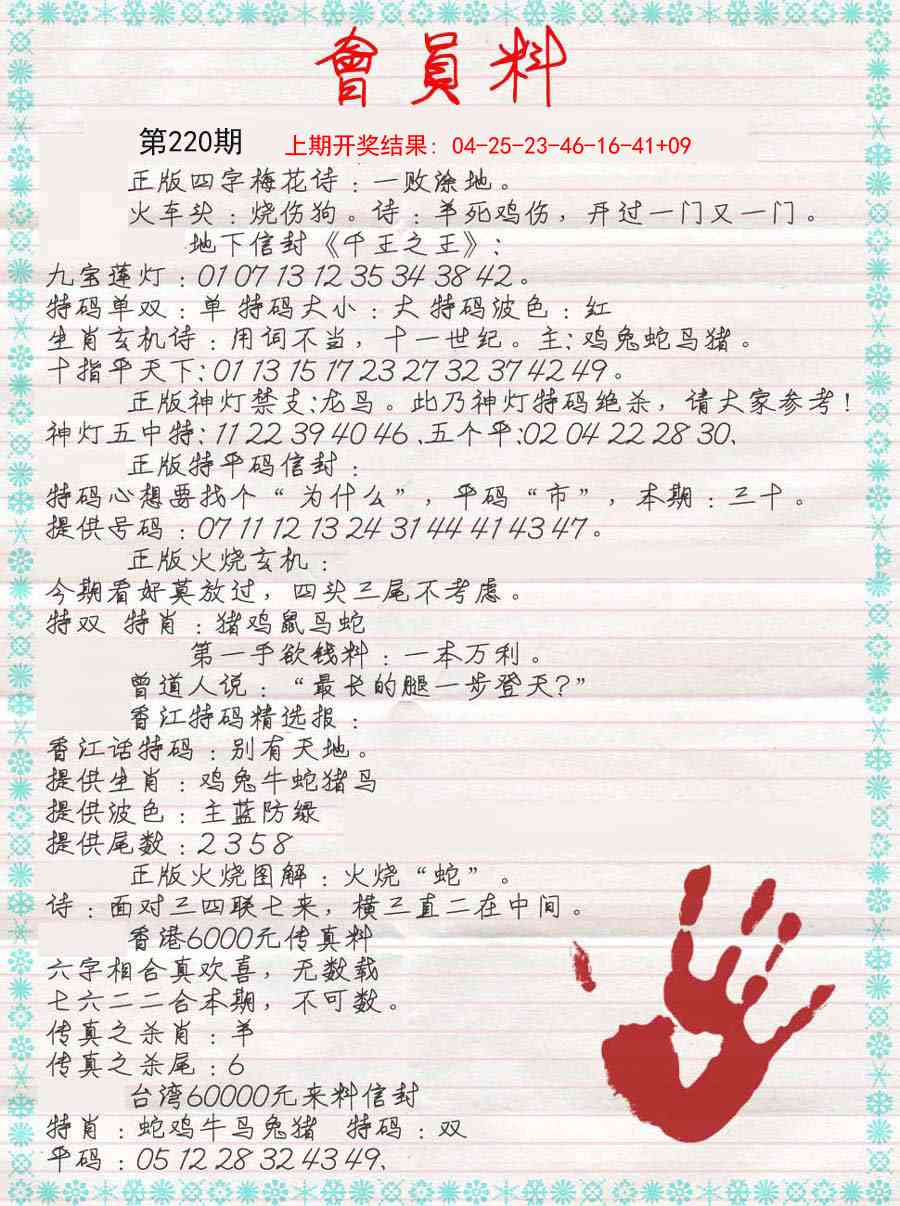 會員料
第220期 上期开奖结果：04-25-23-46-16-41+09
正版四字梅花诗：一败涂地。
火车头：烧伤狗。诗：羊死鸡伤，开过一门又一门。
地下信封《千王之王》：
九宝莲灯：01 07 13 12 35 34 38 42。
特码单双：单 特码大小：大 特码波色：红
生肖玄机诗：用词不当，十一世纪。主：鸡兔蛇鸟猪。
十指平天下：01 13 15 17 23 27 32 37 42 49。
正版神灯禁支:龙鸟。此乃神灯特码绝杀，请大家参考！
神灯五中特：11 22 39 40 46、五个平:02 04 22 28 30、
正版特平码信封：
特码心想要找个“为什么”，平码“市”，本期：三十。
提供号码：07 11 12 13 24 31 44 41 43 47。
正版火烧玄机：
今期看好莫放过，四头三尾不考虑。
特双 特肖：猪鸡鼠鸟蛇
第一手欲钱料：一本万利。
曾道人说：“最长的腿一步登天?”
香江特码精选报：
香江话特码：别有天地。
提供生肖：鸡兔牛蛇猪鸟
提供波色：主蓝防绿
提供尾数：2 3 5 8
正版火烧图解：火烧“蛇”。
诗：面对三四联七来，横三直二在中间。
香港6000元传真料
六字相合真欢喜，无数载
七六二二合本期，不可数。
传真之杀肖：羊
传真之杀尾：6
台湾60000元来料信封
特肖：蛇鸡牛鸟兔猪 特码：双
平码：05 12 28 32 43 49、